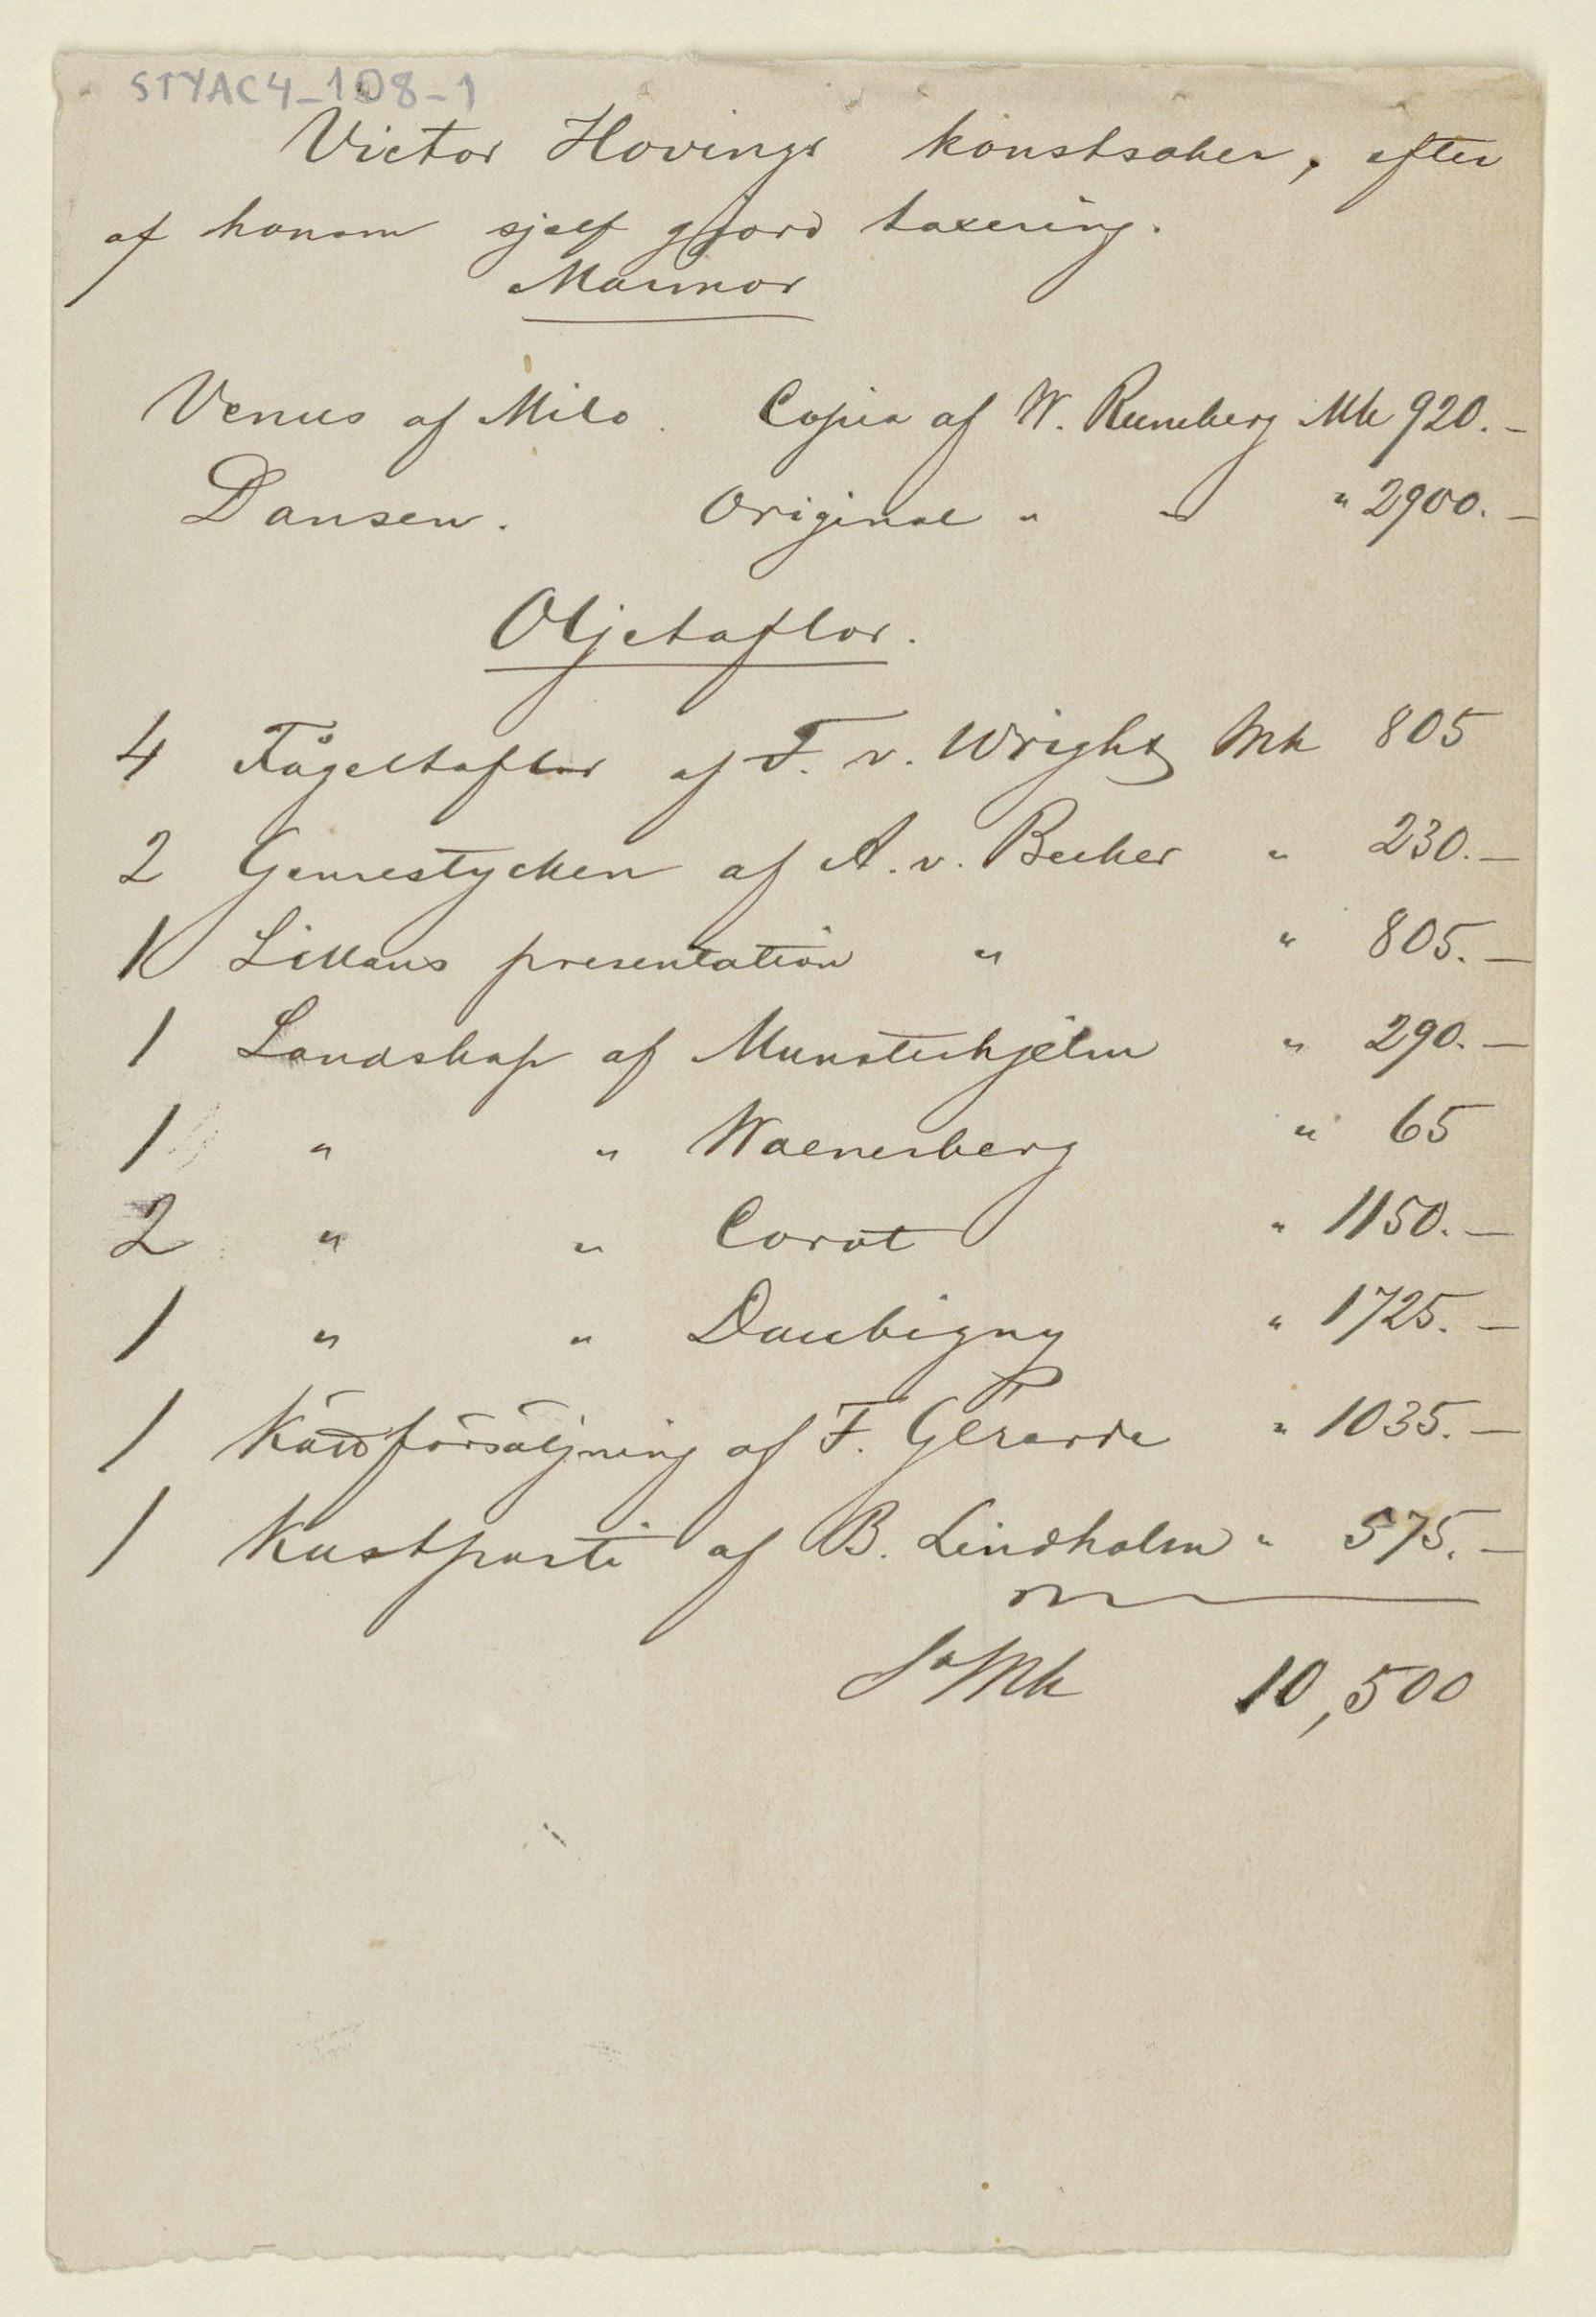 STYAC4_108-1
Victor Hovings konstsaker, efter
af honom sjelf gjord taxering.
Marmor
Venus af Milo. Copia af W. Runeberg Mk 920.–
Dansen. Original " " " 2900.–
Oljetaflor.
4 Fågeltaflor af F. v. Wright Mk 805
2 Genrestycken af A. v. Becker " 230.–
1 Lillans presentation " " 805.–
1 Landskap af Munsterhjelm " 290.–
1 " " Waenerberg " 65
2 " " Corot " 1150.–
1 " " Daubigny " 1725.–
1 af F. Gérarde " 1035.–
1 Kustparti af B. Lindholm " 575.–
Sa Mk 10,500